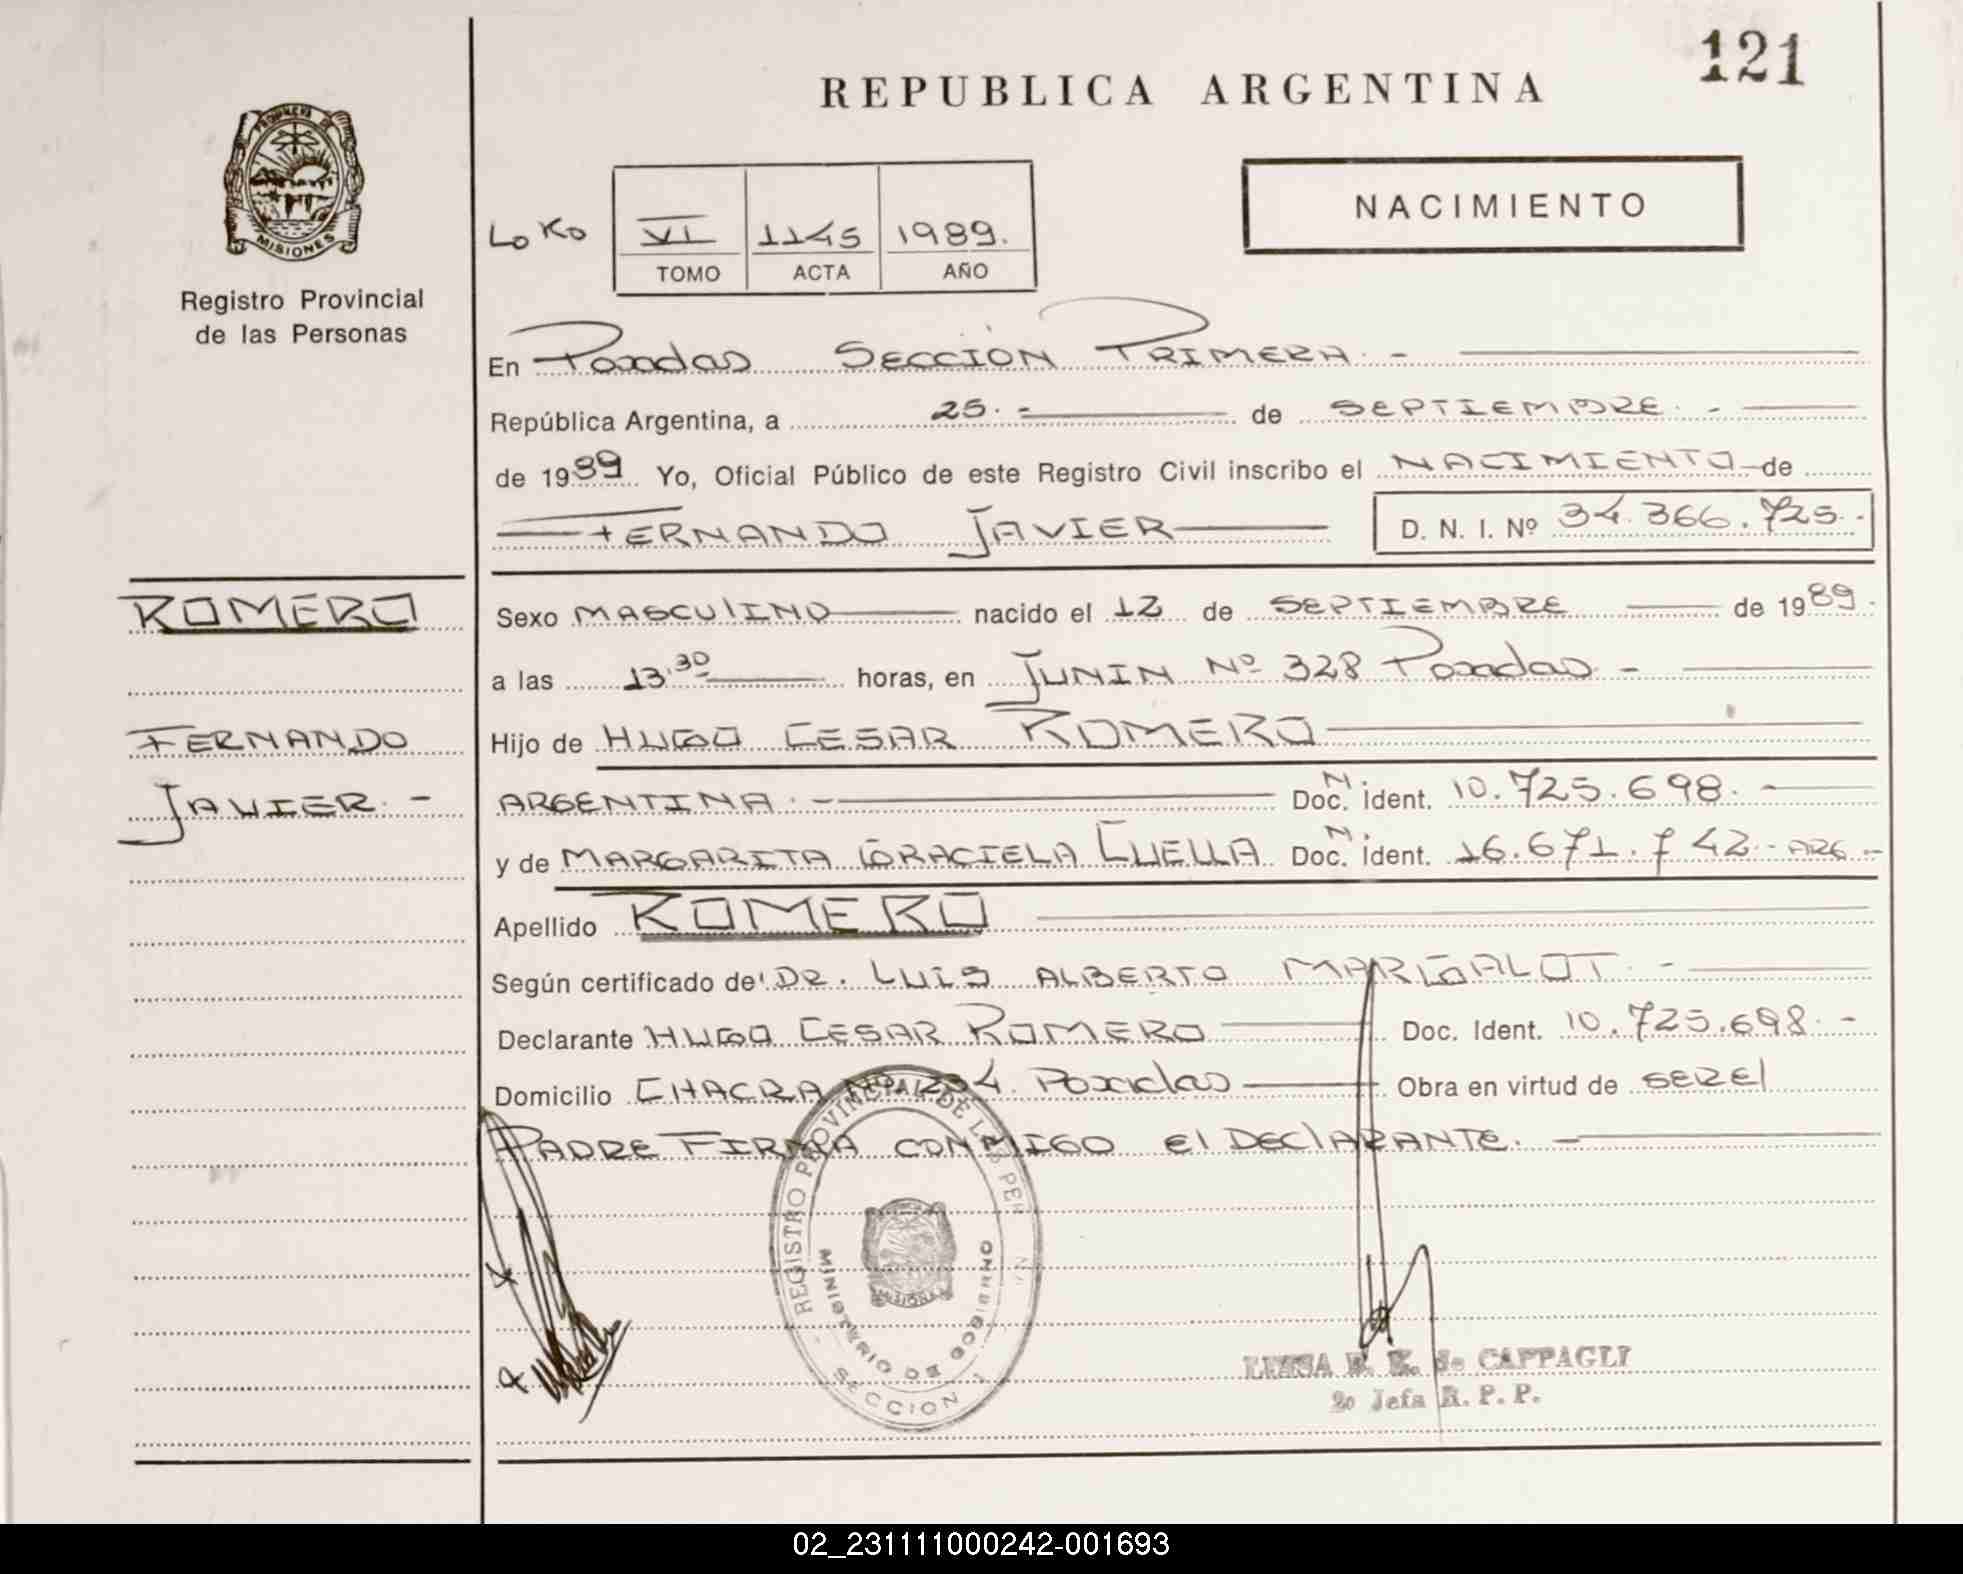 121
REPUBLICA ARGENTINA
PROVINCIA DE
MISIONES
Registro Provincial
de las Personas
NACIMIENTO
VI 1145 1989.
TOMO ACTA AÑO
En Posadas Seccion Primera. -
República Argentina, a 25. - de Septiembre. -
de 1989 Yo, Oficial Público de este Registro Civil inscribo el NACIMIENTO de
FERNANDO JAVIER D. N. I. Nº 34.366.725.-
ROMERO
FERNANDO
JAVIER. -
Sexo MASCULINO nacido el 12 de SEPTIEMBRE de 1989.
a las 13.30 horas, en JUNIN Nº 328 Posadas -
Hijo de HUGO CESAR ROMERO
ARGENTINA. - Doc. N. ident. 10.725.698. -
y de MARGARITA GRACIELA CUELLA Doc. N. ident. 16.671.742.- ARG.-
Apellido ROMERO
Según certificado de DR. LUIS ALBERTO MARGALOT. -
Declarante HUGO CESAR ROMERO Doc. Ident. 10.725.698. -
Domicilio CHACRA Nº 234. Posadas Obra en virtud de SER El
PADRE FIRMA CONMIGO El DEClARANTE. -
REGISTRO PROVINCIAL DE LAS PER
MINISTERIO DE GOBIERNO
MISIONES
SECCION 1
de CAPPAGLI
2o Jefa R. P. P.
02_231111000242-001693